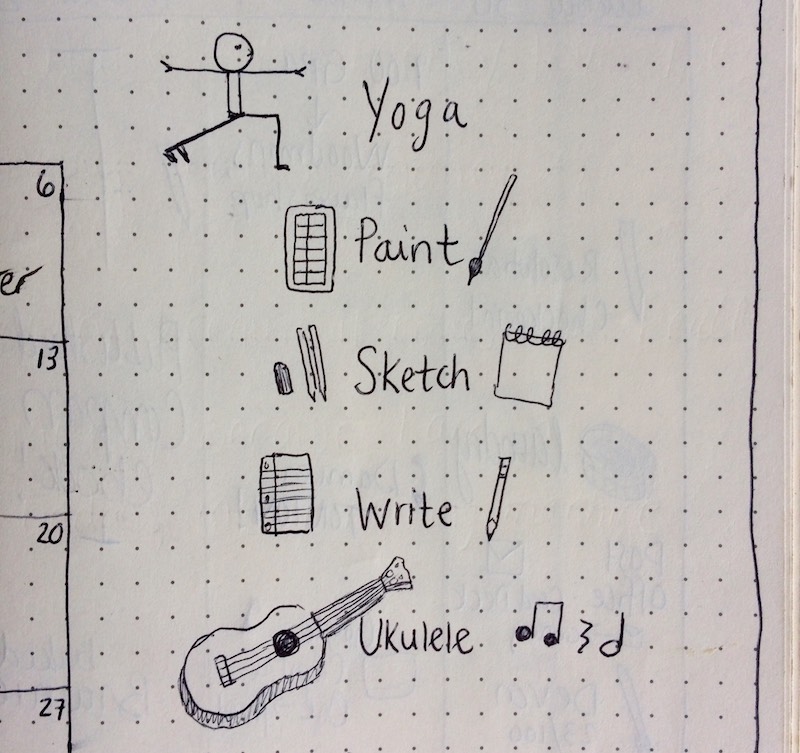 Yoga
6
Paint
er
13
Sketch
20
Write
Ukulele
27